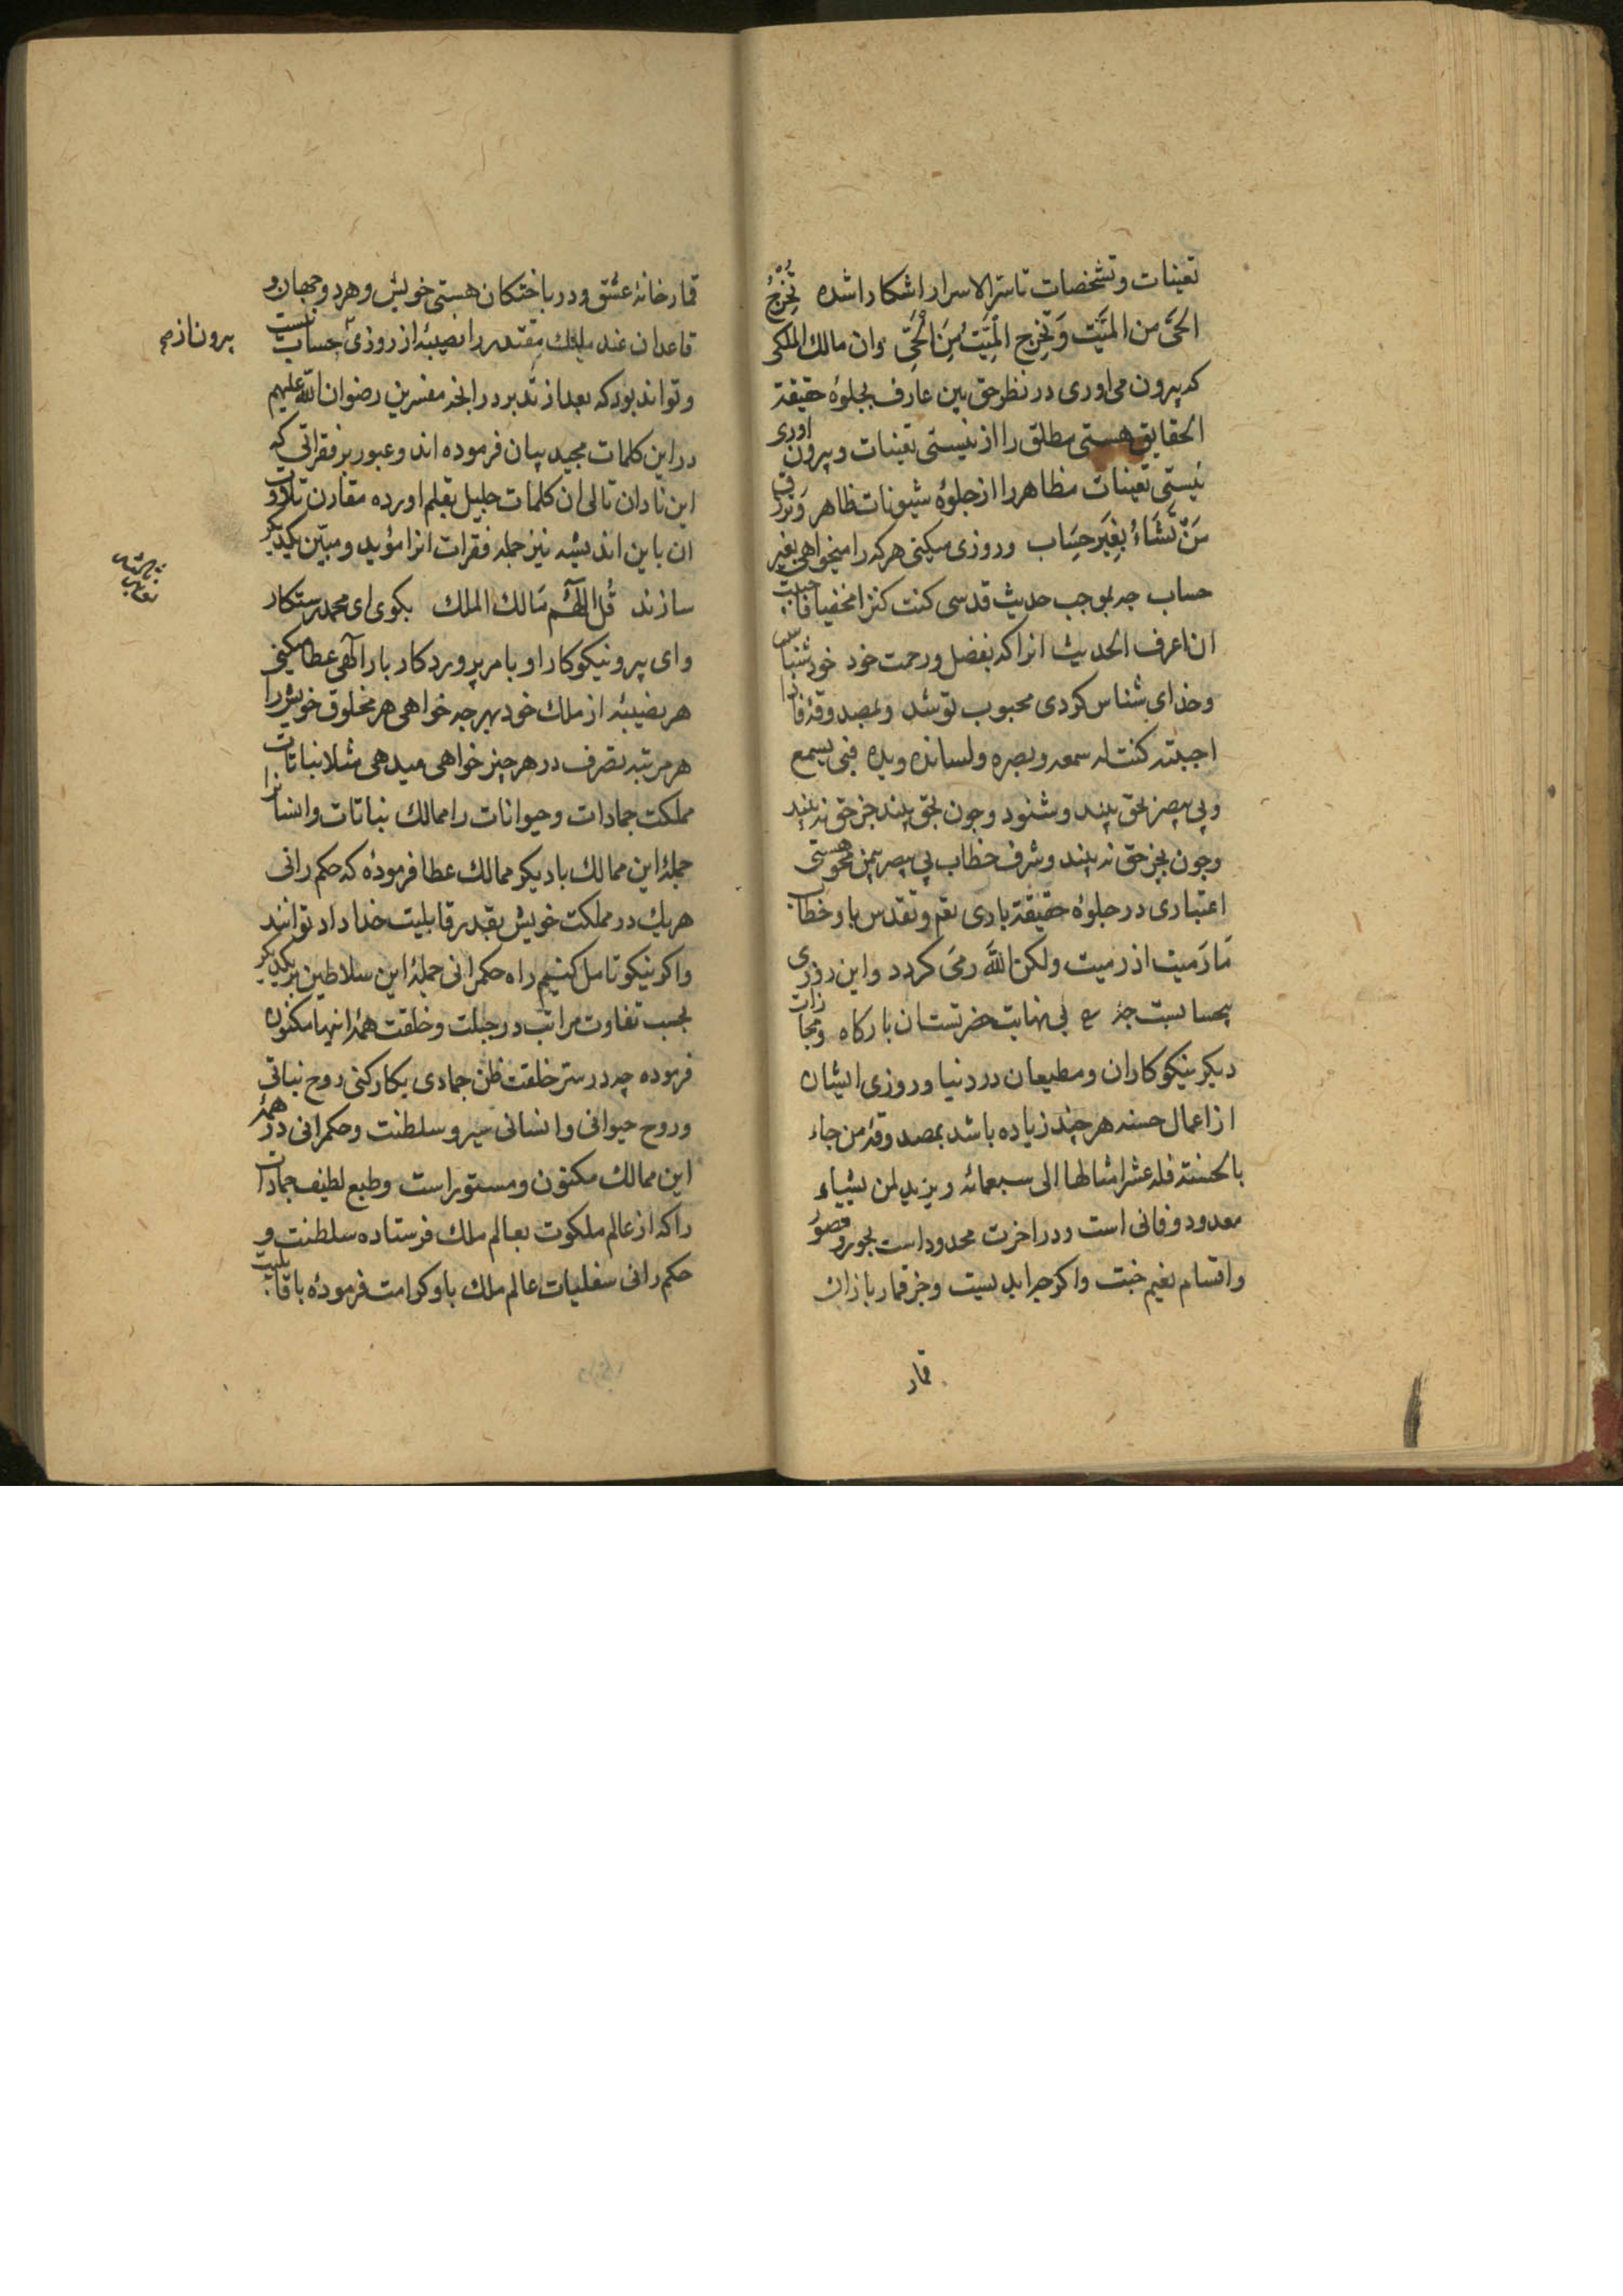 تعینات وتشخصات تا سترالاسرار اشکارا شده تُخْرِجُ
الحَیَّ من المَیَّتِ وَتُخْرِج المَیَّتَ مِنَ الْحَیِّ وان مالك الملکی
که بیرون می اوری در نظر حق بین عارف بجلوهٔ حقیقة
الحقایق هستی مطلق را از نیستی تعینات وبیرون اوری
نیستی تعینات مظاهر را از جلوهٔ شیونات ظاهر وَتَرْزُق
مَنْ تَشَاءُ بِغَیرِ حِسَاب وروزی میکنی هرکه را میخواهی بغیر
حساب چه بموجب حدیث قدسی کنت کنزا مخفیا فاحببت
ان اعرف الحدیث انرا که بفضل ورحمت خود خود شناس
وخدای شناس کردی محبوب تو شد وبمصدوقهٔ فاذا
احببته کنت له سمعه وبصره ولسانه ویده فبی یسمع
وبی یبصر بحق بیند وشنود وچون بحق بیند جز حق نه بیند
وچون بجز حق نه بیند وشرف خطاب بی یبصر بین محو هستی
اعتباری در جلوهٔ حقیقة باری تعم وتقدس باو خطاب
مَا رَمیت اذ رمیت ولکن اللّٰه رمَی کردد واین روزی
بیحسابست بی نهایت حضرتستان بارکاه ومجازات
دیکر نیکوکاران ومطیعان در دنیا وروزی ایشان
از اعمال حسنه هرچند زیاده باشد بمصدوقهٔ من جاء
بالحسنة فله عشر امثالها الی سبعمائه ویزید لمن یشاء
معدود وفانی است ودر اخرت محدود است بحور وقصور
واقسام نعیم جنت واکرچه ابدیست وجز قمار بازان
قمار
قمارخانهٔ عشق ودر باختکان هستی خویش وهر دو جهان و
قاعدان عند ملیك مقتدر را نصیبهٔ از روزی بیحساب نیست
بیرون از
وتواند بود که بعد از تدبر در انچه مفسرین رضوان اللّٰه علیهم
در این کلمات مجید بیان فرموده اند وعبور بر فقراتی که
این نادان تالی ان کلمات جلیل بقلم اورده مقارن تلاوت
ان باین اندیشه نیز جمله فقرات انرا مؤید ومبیّن یکدیکر
سازند قُل اللّٰهُمَّ مَالك الملك بکوی ای محمد رستکار
وای پیرو نیکوکار او بامر پروردکار بار الٓهی عطا میکنی
هر نصیبهٔ از ملك خود بهرچه خواهی هر مخلوق خویش را
هر مرتبه تصرف در هرچیز خواهی میدهی مثلا نباتات
مملکت جمادات وحیوانات را ممالك نباتات وانسانرا
جملهٔ این ممالك با دیکر ممالك عطا فرمودهٔ که حکم رانی
هریك در مملکت خویش بقدر قابلیت خداداد توانند
واکر نیکو تامل کنیم راه حکمرانی جملهٔ این سلاطین بر یکدیکر
بحسب تفاوت مراتب در جبلت وخلقت همهٔ انها مکنون
فرموده چه در ستر خلقت ظن جمادی بکارکنی روح نباتی
وروح حیوانی وانسانی سیر وسلطنت وحکمرانی در همهٔ
این ممالك مکنون ومستور است وطبع لطیف جمادات
را که از عالم ملکوت بعالم ملك فرستاده سلطنت و
حکم رانی سفلیات عالم ملك باو کرامت فرمودهٔ با قابلیت